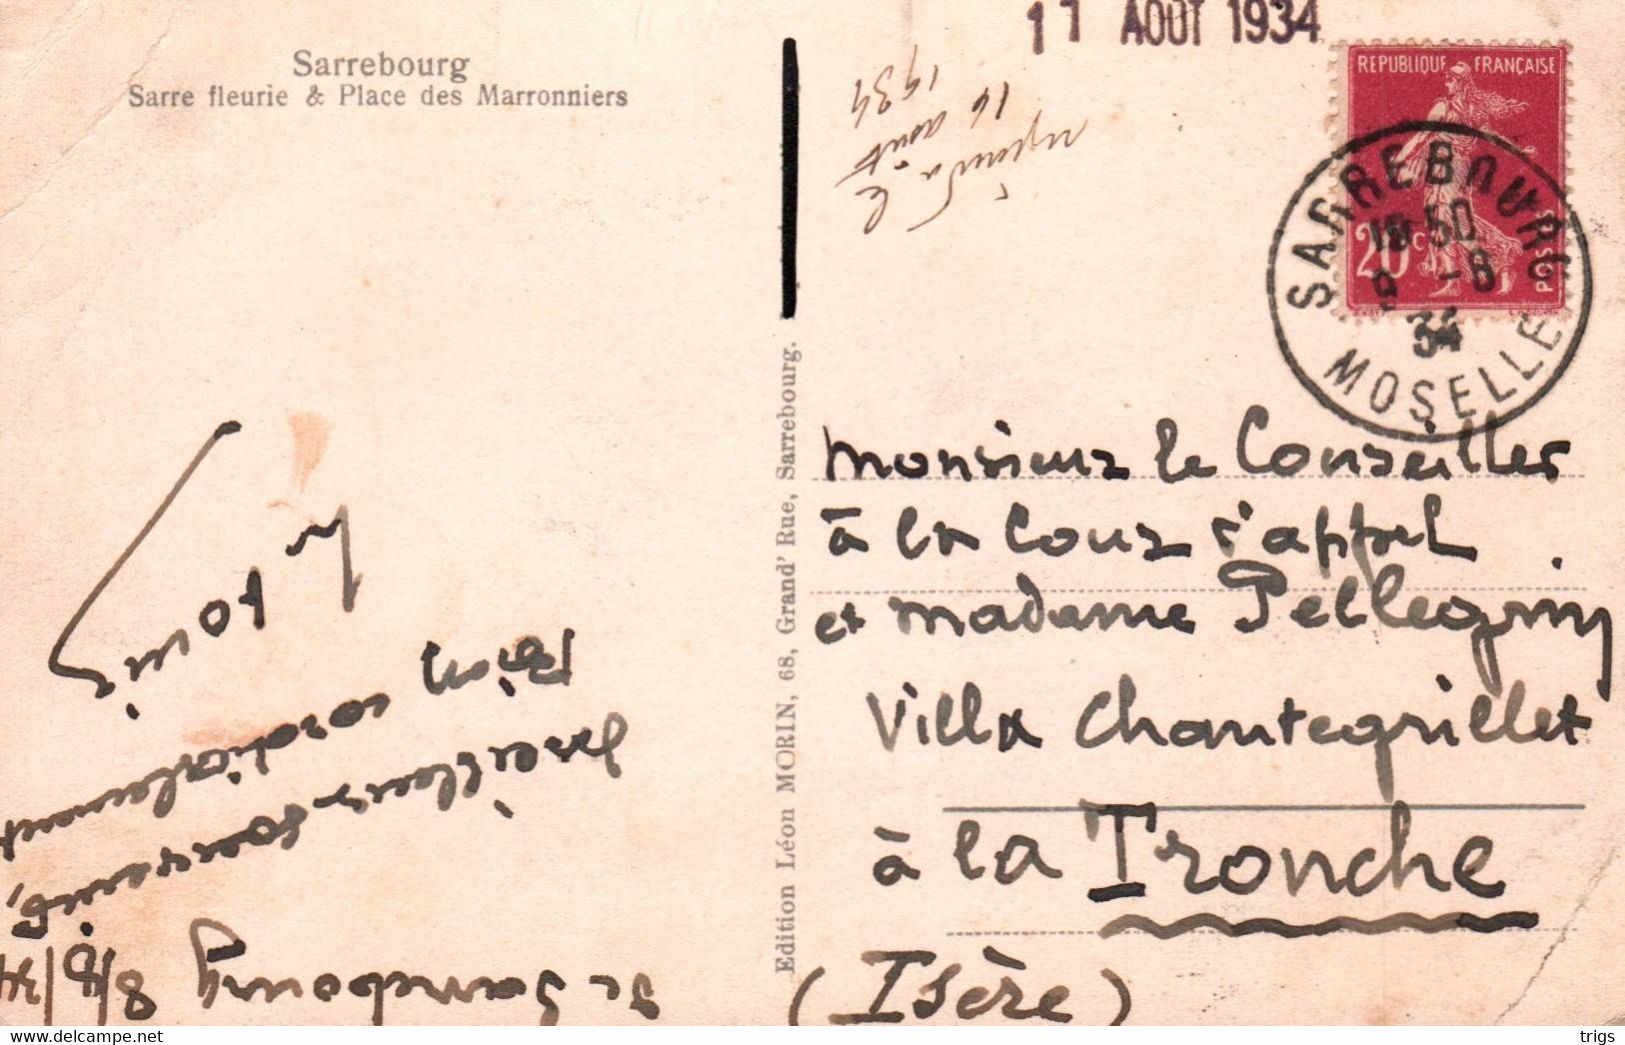 Sarrebourg
Sarre fleurie & Place des Marronniers
11 AOUT 1934
le
16 août
1934
REPUBLIQUE FRANÇAISE
20c
POSTES
SARREBOURG
MOSELLE
Edition Léon MORIN, 68, Grand' Rue, Sarrebourg.
Monsieur le Conseiller
à la Cour d'appel
et Madame Pellegrin
Villa Chantegrillet
à la Tronche
(Isère)
De Sarrebourg 8/8/34
meilleurs souvenirs,
Bien cordialement
Louis
www.delcampe.net
trigs